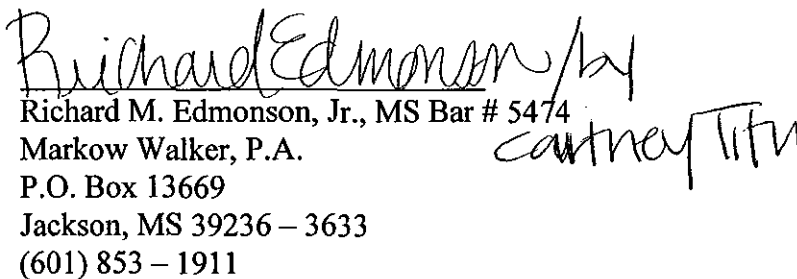 Richard Edmonson / by
Richard M. Edmonson, Jr., MS Bar # 5474
Markow Walker, P.A.
P.O. Box 13669
Jackson, MS 39236 – 3633
(601) 853 – 1911